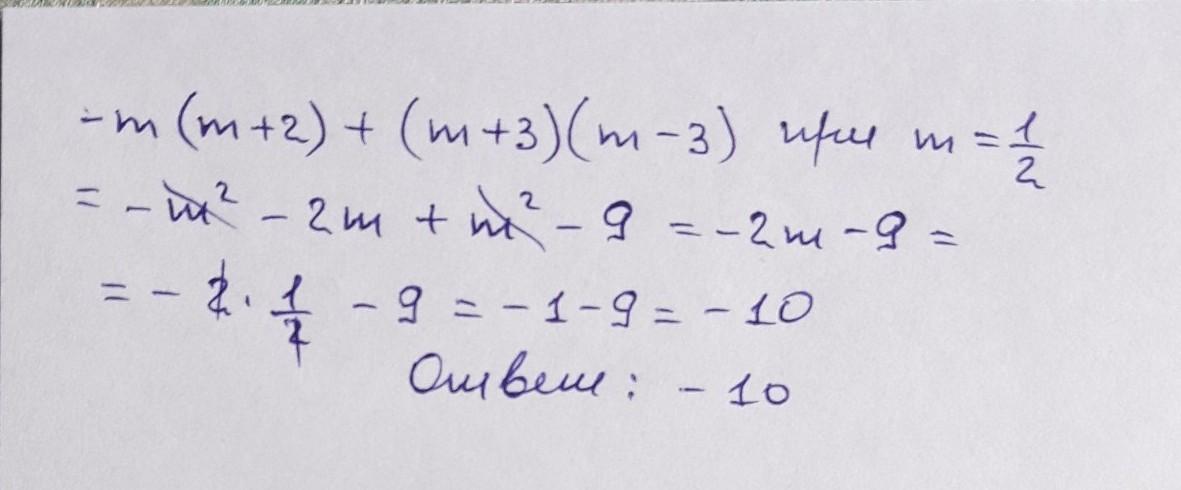 -m(m+2) + (m+3)(m-3) при m = 1/2
= -m² - 2m + m² - 9 = -2m - 9 =
= -2 · 1/2 - 9 = -1 - 9 = -10
Ответ: -10